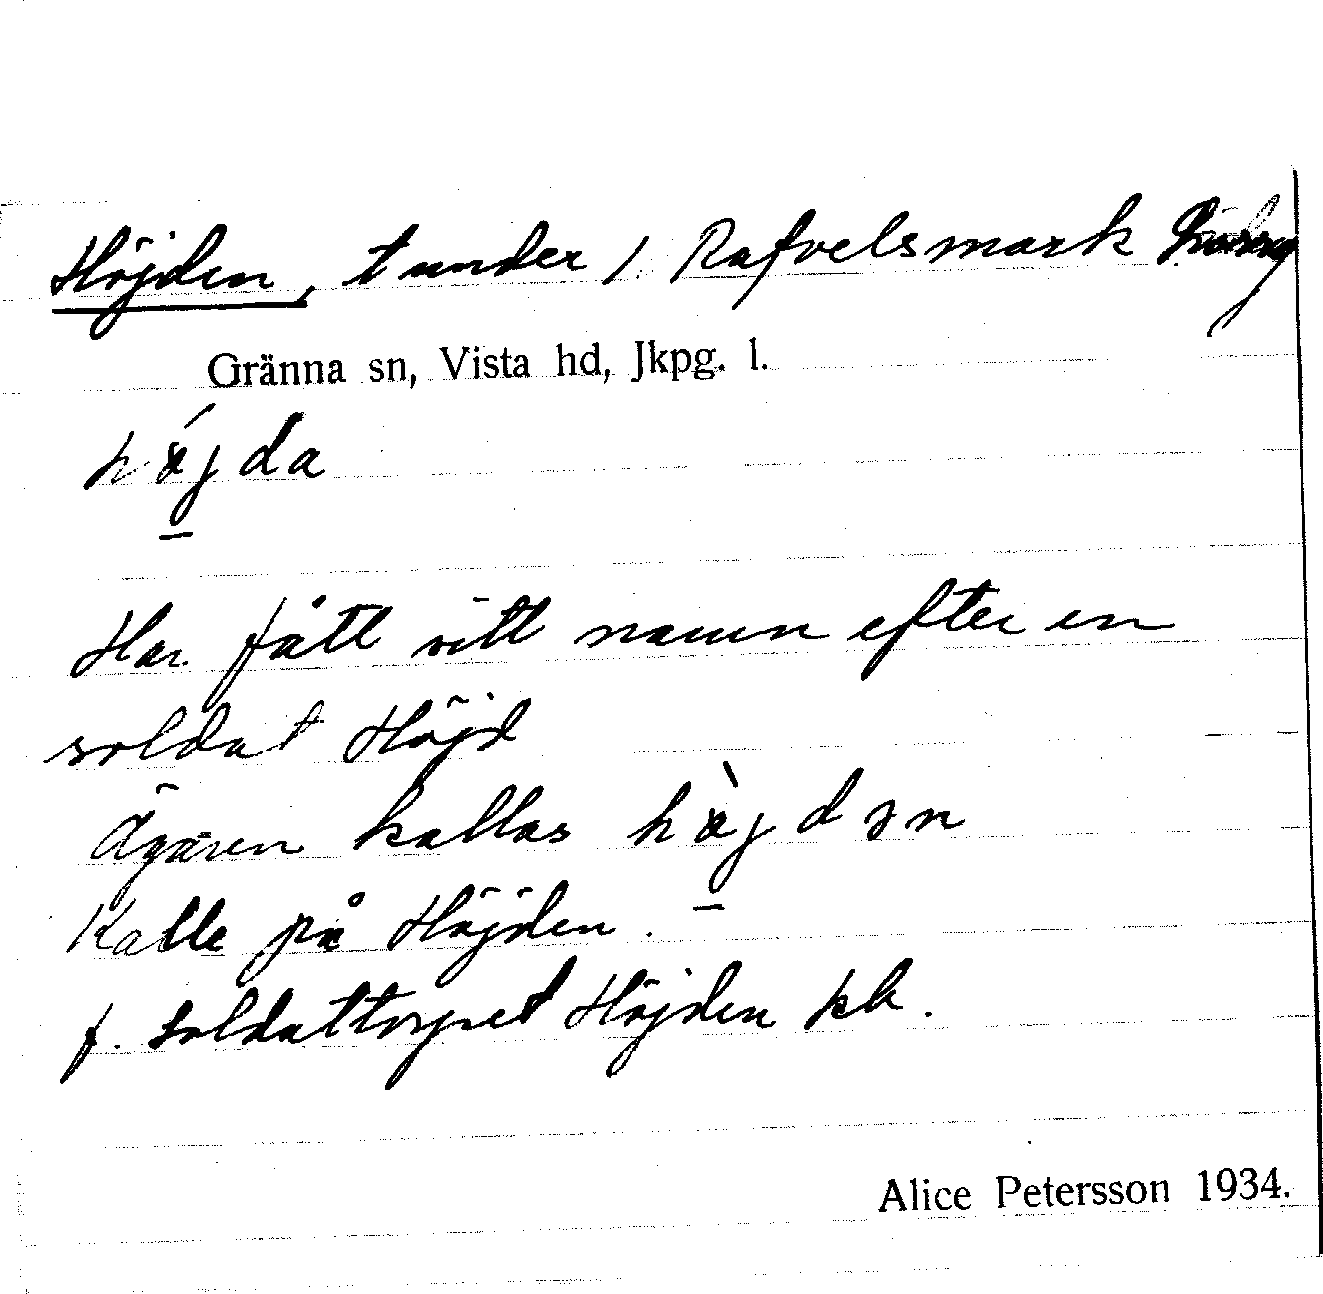 Höjden, t under 1 Rafvelsmark
Gränna sn, Vista hd, Jkpg. l.
hö́jda
Har fått sitt namn efter en
soldat Höjd
Ägaren kallas hö̀jdən
Kalle på Höjden.
f. soldattorpet Höjden kb.
Alice Petersson 1934.